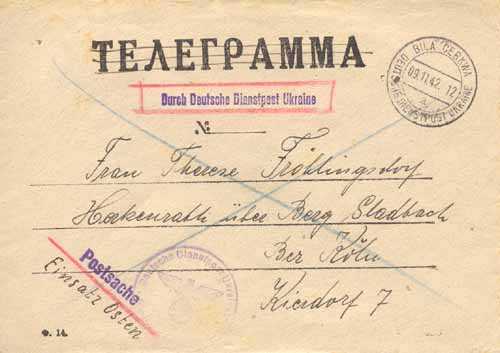 ТЕЛЕГРАММА
BILA CERKWA
09.11.42. 12
DEUTSCHE DIENSTPOST UKRAINE
a
Durch Deutsche Dienstpost Ukraine
№
Frau Therese Fröhlingsdorf
Herkenrath über Berg Gladbach
Bez Köln
Kierdorf 7
Postsache
Einsatz Osten
Deutsche Dienstpost Ukraine
Ф. 14.